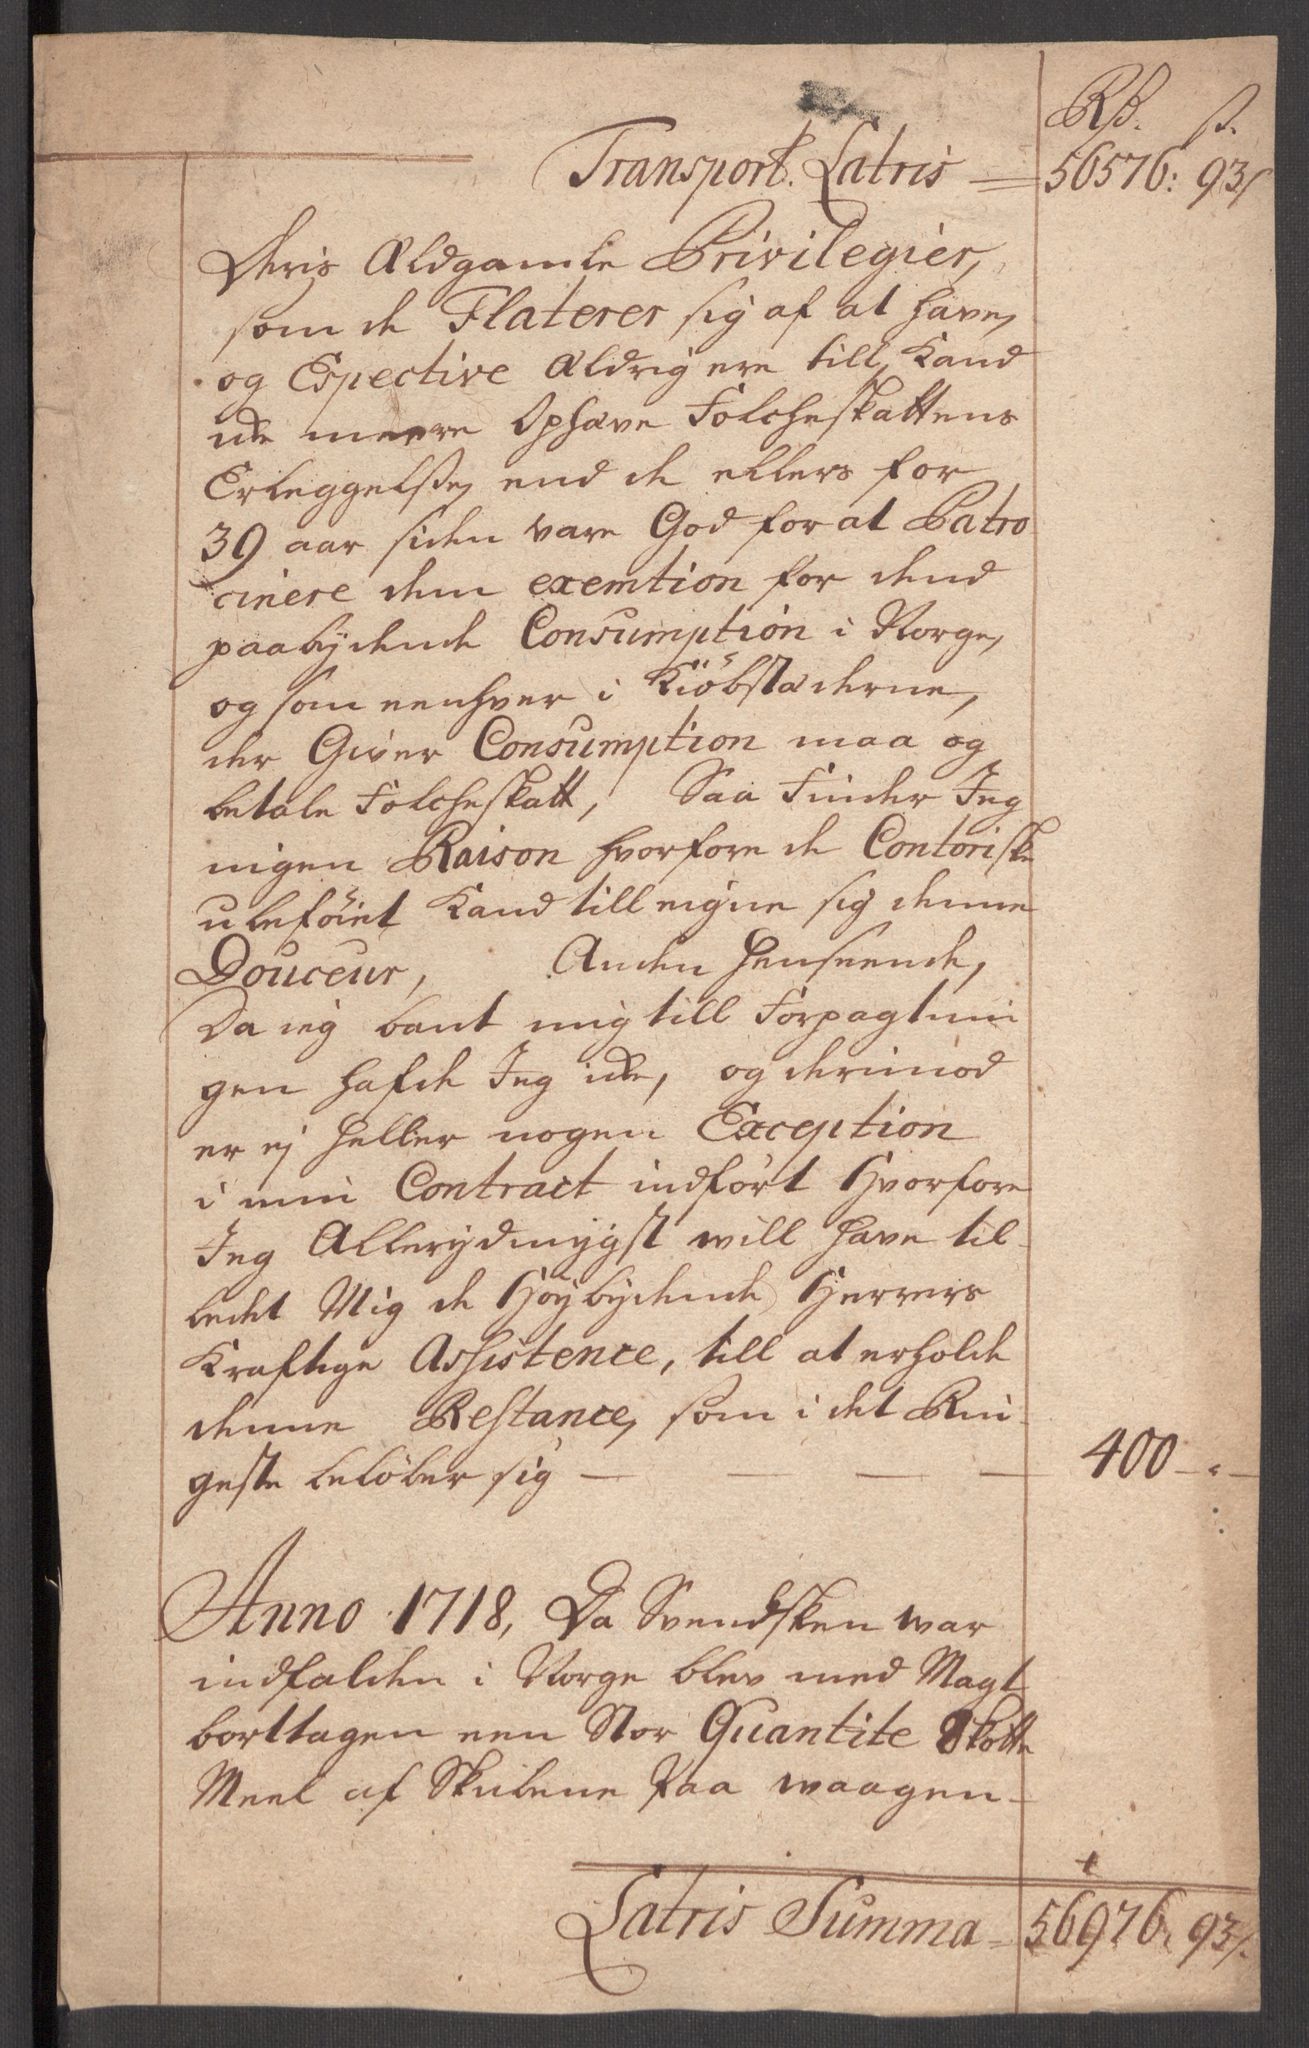 Rd. s.
Transport. Latris 56576: 93/
Deris Ældgamle Privilegier,
som de Flaterer sig af at have,
og Espective Aldrig ere till, Kand
icke meere Ophæve Folcheskattens
Erleggelse, end de ellers for
39 aar siden vare God for at Patro
cinere dem exemtion for dend
paabydende Consumption i Norge,
og som eenhver i Kiöbstæderne,
der Giver Consumption maa og
betale Folcheskatt, Saa Finder Jeg
ingen Raison hvorfore de Contoriske
ubeföiet Kand tilleigne sig denne
Douceur, Anden Henseende,
Da ieg bant mig till Forpagtnin
gen hafde Jeg icke, og derimod
er ej heller nogen Exception
i min Contract indfört Hvorfore
Jeg Allerydmygst will have til-
bedet Mig de Höybydende Herrers
Kraftige Assistence, till at erholde
denne Restance, som i det Rin-
geste belöber sig — — — — 400 — " —
Anno 1718, Da Svendsken war
indfalden i Norge blev med Magt
borttagen een Stor Quantite Skotte
Meel af Skibene Paa waagen-
Latris Summa = 56976. 93/.